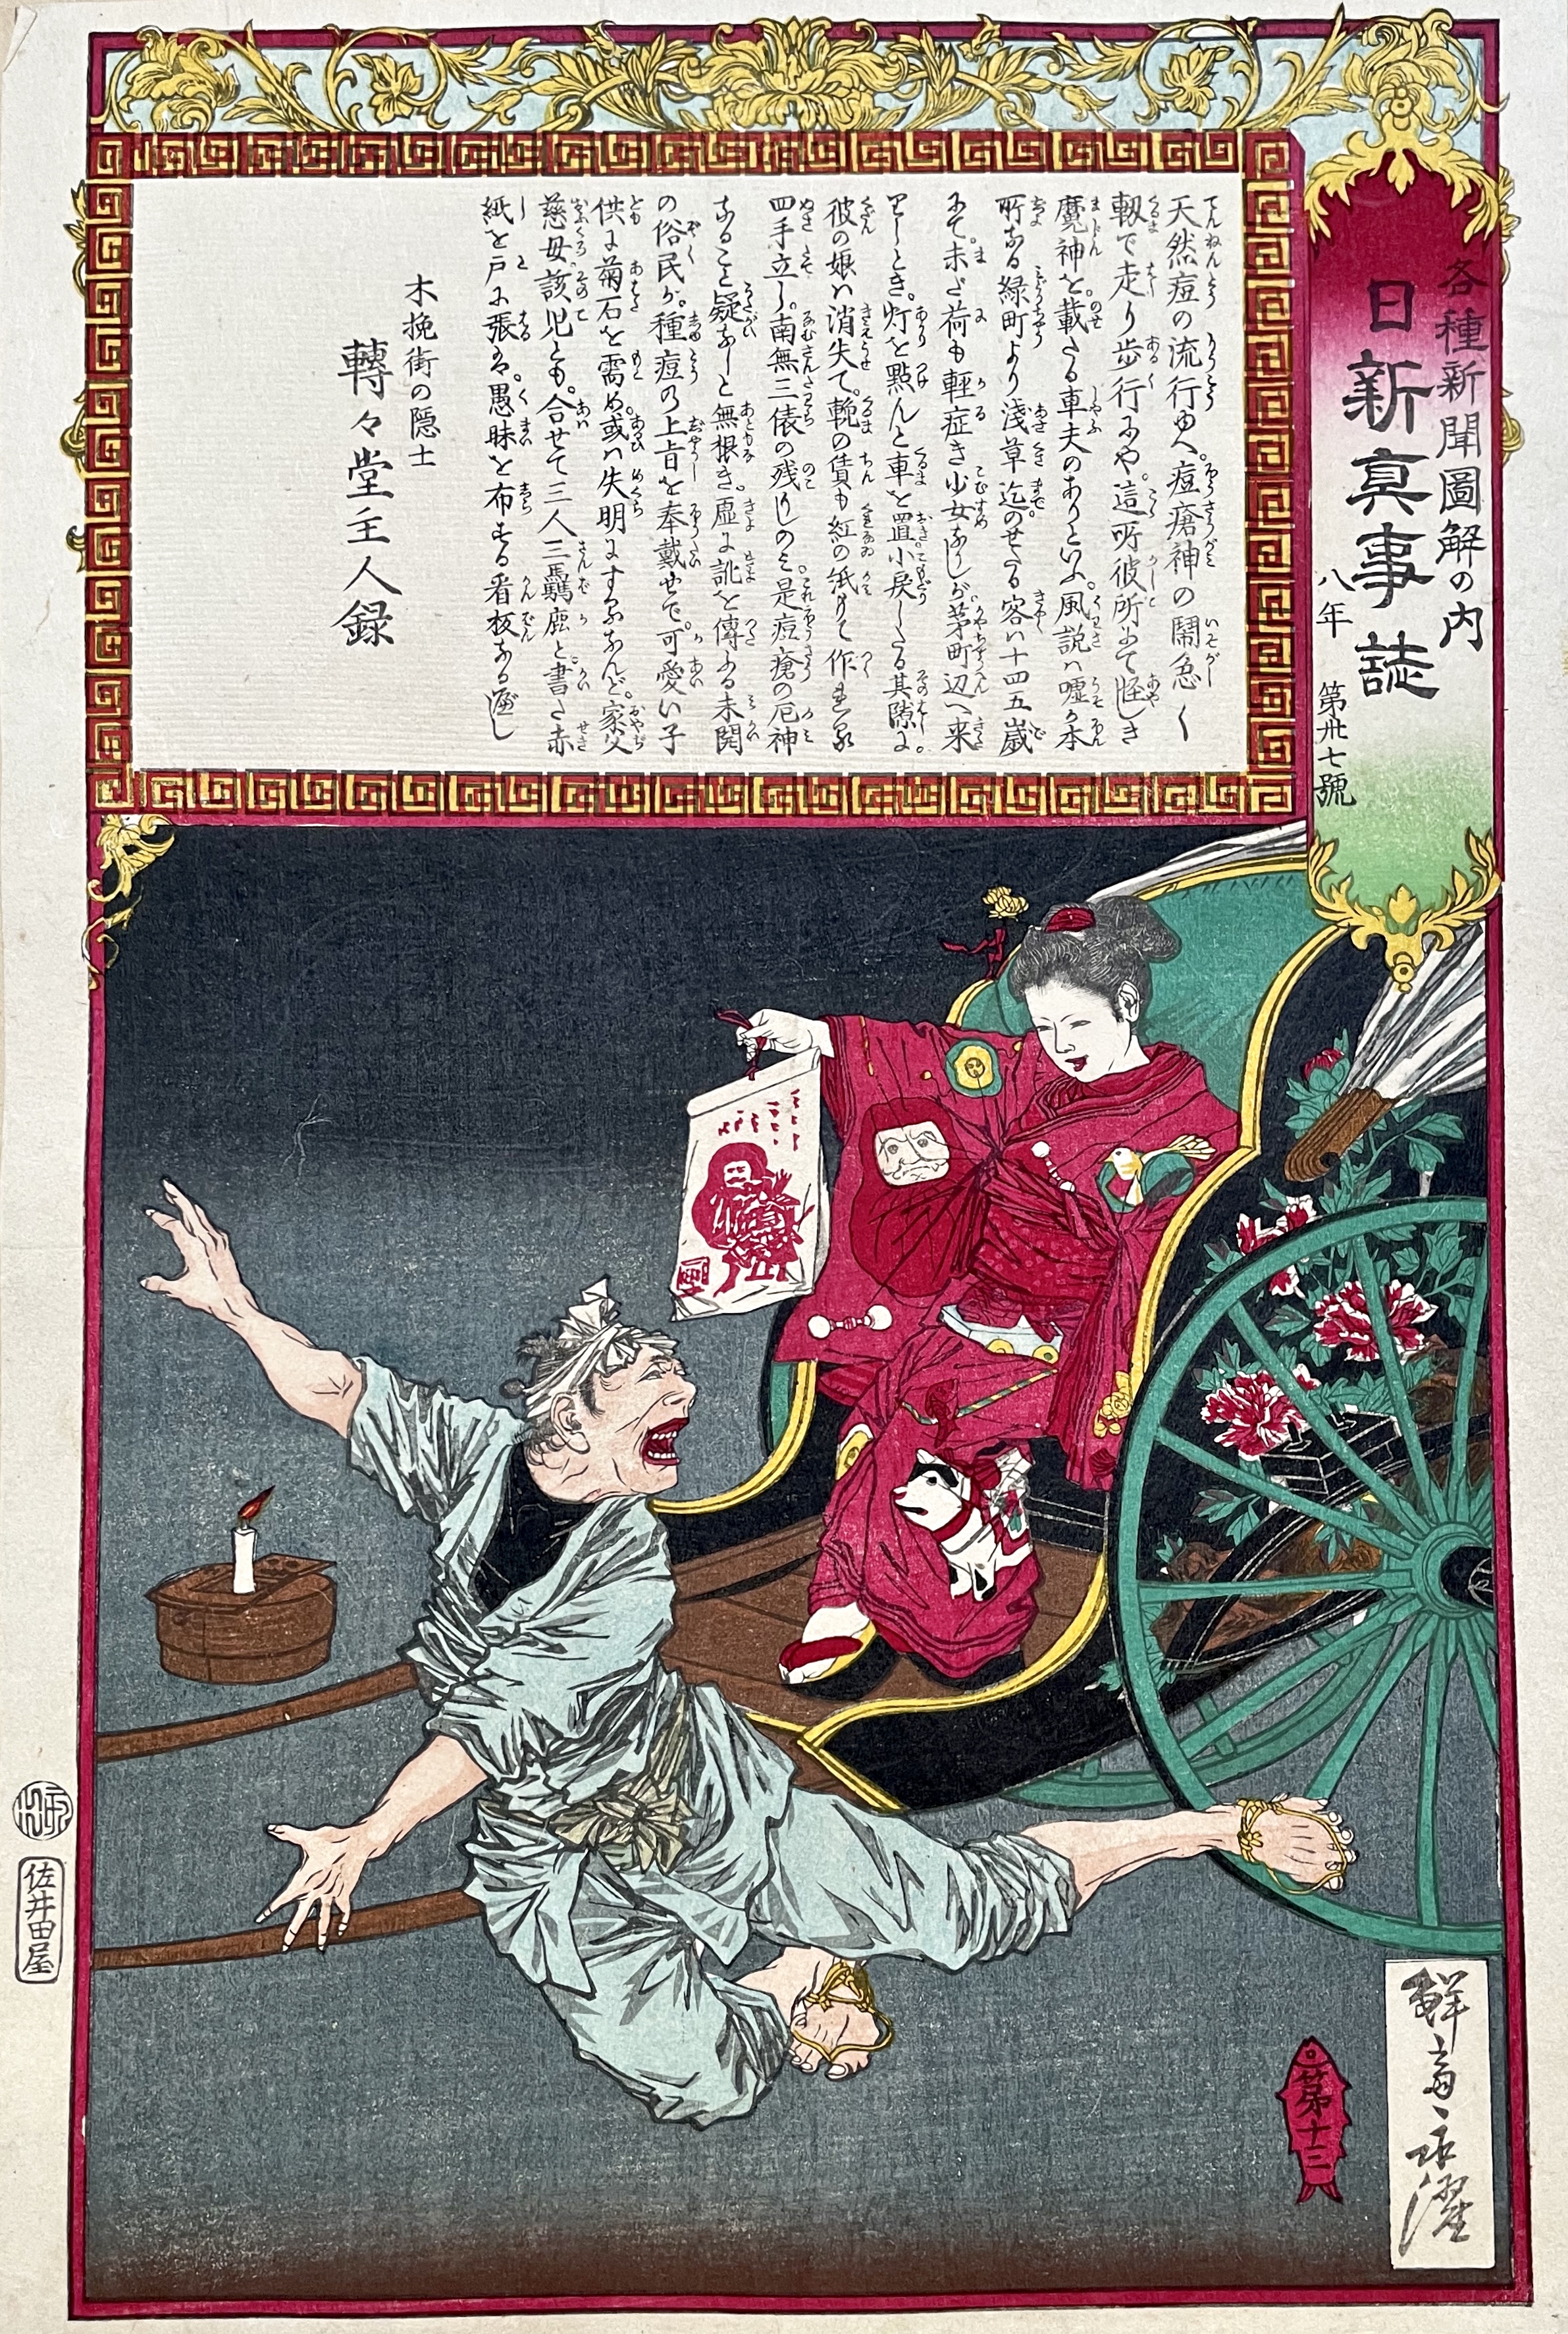 各種新聞圖解の内
日新真事誌
八年 第卅七號
天然痘の流行ゆへ。痘瘡神の鬧急く
轂で走り歩行にや。這所彼所にて怪しき
魔神を載たる車夫のありといふ。風説ハ嘘か本
所なる緑町より淺草迄のせたる客ハ十四五歳
にて。未だ荷も輕症き少女なりしが。茅町辺へ来
りしとき。灯を點んと車を置小戻したる其隙に
彼の娘ハ消失て。輓の賃も紅の紙もて作
四手立し。南無三俵の残りしのミ。是痘瘡の厄神
なること疑なしと無根き。虚に訛を傳ふる未開
の俗民が。種痘の上旨を奉戴せで。可愛い子
供に菊石を需め。或ハ失明にするなんど。家父
慈母該児とも。合せて三人三馬鹿と書た赤
紙を戸に張る。愚昧を布する看板なる
木挽街の隠士
轉々堂主人録
第十三
鮮斎永濯
佐井田屋